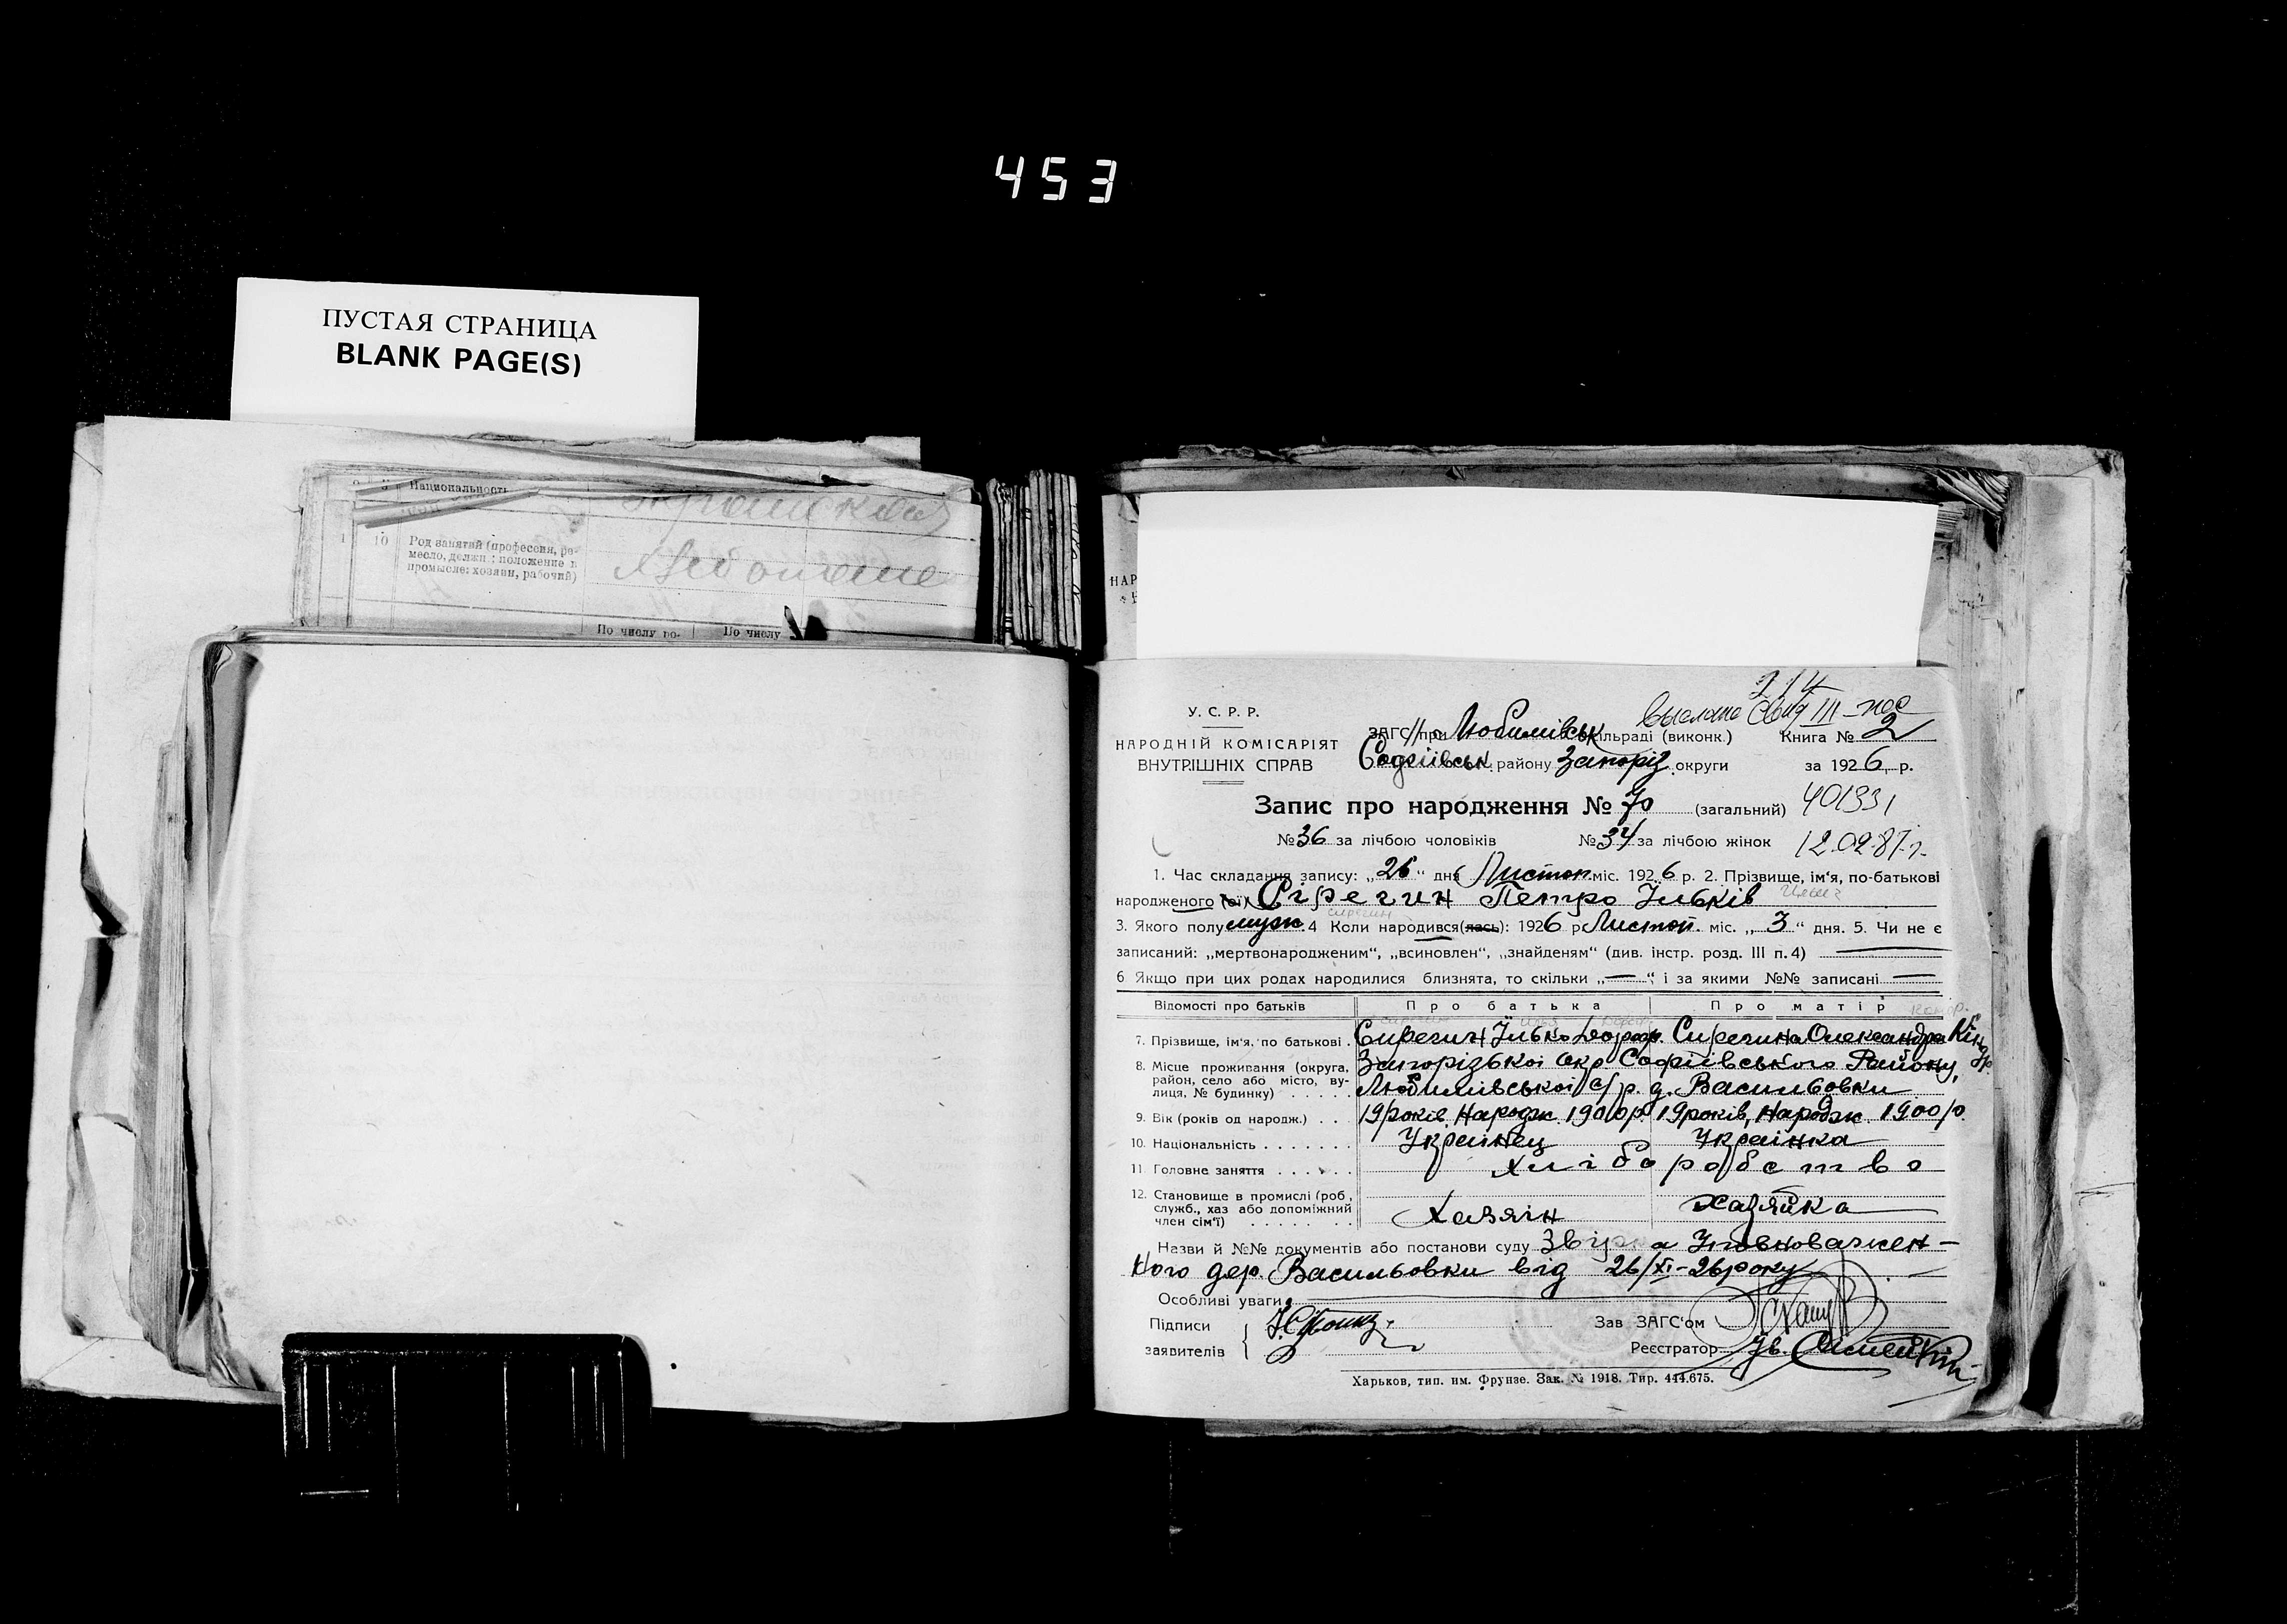 453
ПУСТАЯ СТРАНИЦА
BLANK PAGE(S)
Национальность
10 Род занятий (профессия, ре-
месло, должн.; положение в
промысле: хозяин, рабочий)
По числу ро- По числу
НАР
214
выслано III
У. С. Р. Р.
НАРОДНІЙ КОМІСАРІЯТ
ВНУТРІШНІХ СПРАВ
ЗАГС при Любимівськ сільраді (виконк.) Книга № 2
Софіївськ. району Запоріз. округи за 1926 р.
Запис про народження № 70 (загальний) 401331
№ 36 за лічбою чоловіків № 34 за лічбою жінок 12.02.87 г.
1. Час складання запису: „26“ дня Листоп. міс. 1926 р. 2. Прізвище, ім‘я, по-батькові
народженого (ої) Сірегин Петро Ільків
сирегин
3. Якого полу муж. 4 Коли народився(лась): 1926 р Листоп. міс. „3“ дня. 5. Чи не є
записаний: „мертвонародженим“, „всиновлен“, „знайденям“ (див. інстр. розд. III п. 4) —
6 Якщо при цих родах народилися близнята, то скільки „—“ і за якими №№ записані —
Відомості про батьків Про батька Про матір
7. Прізвище, ім‘я, по батькові . Сирегин Ілько Сирегина Олександра Кіндр.
8. Місце проживання (округа, район, село або місто, ву-
лиця, № будинку) . . . . . Запорізької окр Софіївського Району,
Любимівської с/р. д. Васильовки
9. Вік (років од народж.) . . . 19 років, Народж. 1900 р. 19 років, Народж. 1900 р.
10. Національність . . . . . . . Українец Українка
11. Головне заняття . . . . . . . Хліборобство
12. Становище в промислі (роб., служб., хаз або допоміжний
член сім‘ї) . . . . . . . . Хазяїн хазяйка
Назви й №№ документів або постанови суду Уповноважен-
ного дер. Васильовки від 26/XI-26 року
Особливі уваги: —
Підписи
заявителів
Зав ЗАГС‘ом
Реєстратор
Харьков, тип. им. Фрунзе. Зак. № 1918. Тир. 444.675.